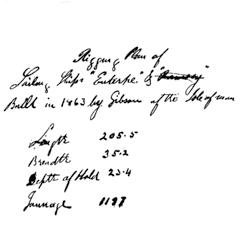 Rigging Plan of
Sailing Ships "Euterpe" & "Ramsey"
Built in 1863 by Gibson of the Isle of man
Length 205.5
Breadth 35.2
Depth of Hold 23.4
Tonnage 1197